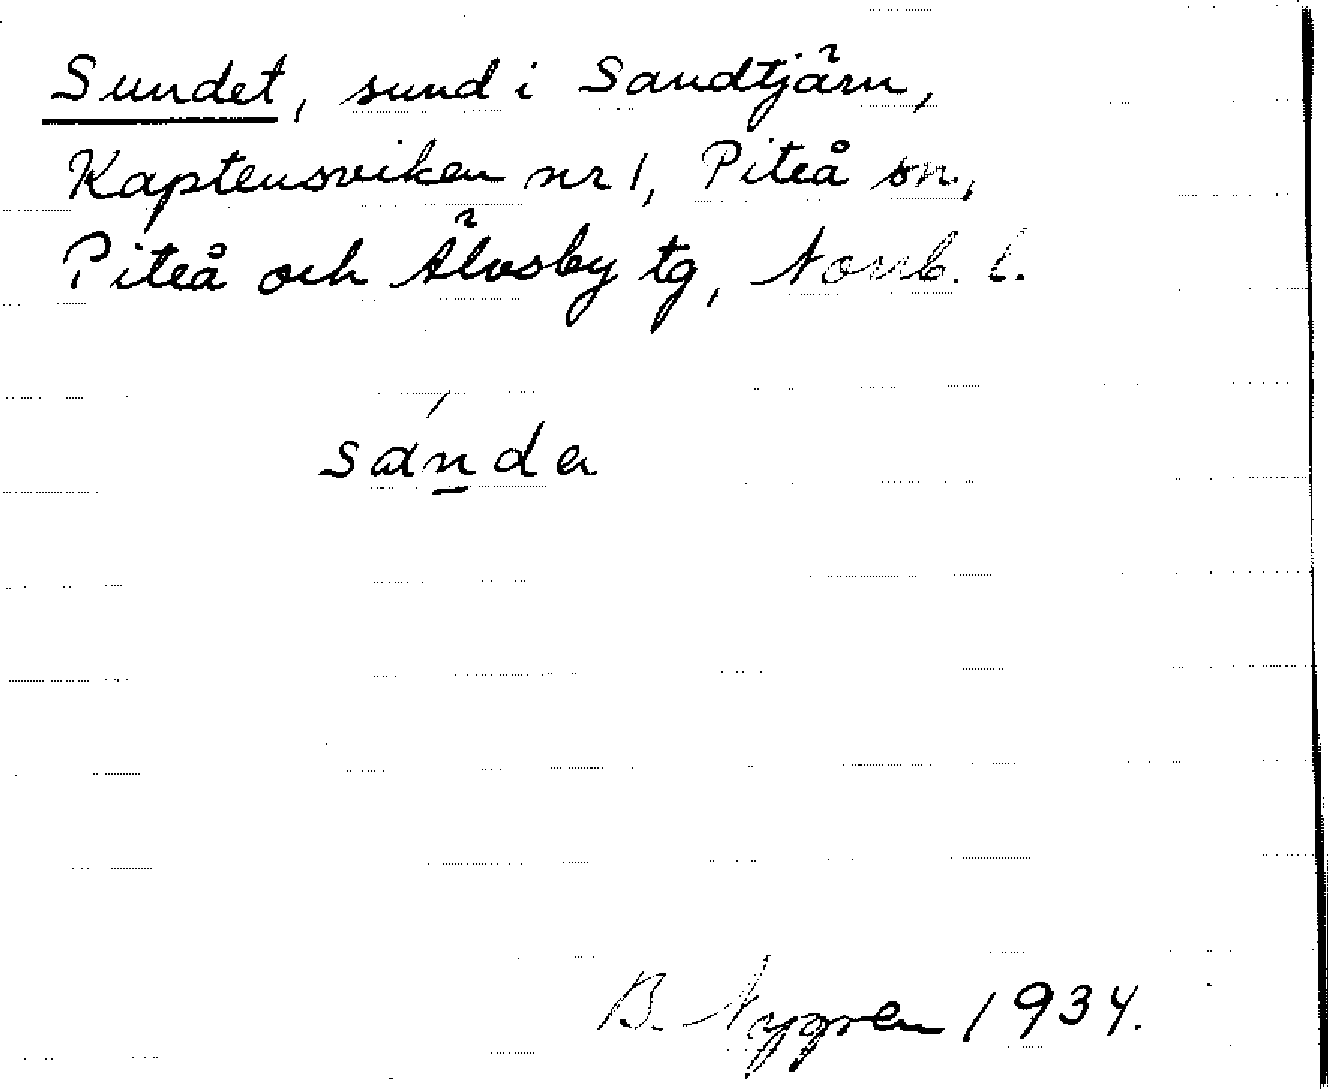 Sundet, sund i Sandtjärn,
Kaptensviken nr 1, Piteå sn,
Piteå och Älvsby tg, Norrb. l.
B. Nygren 1934.